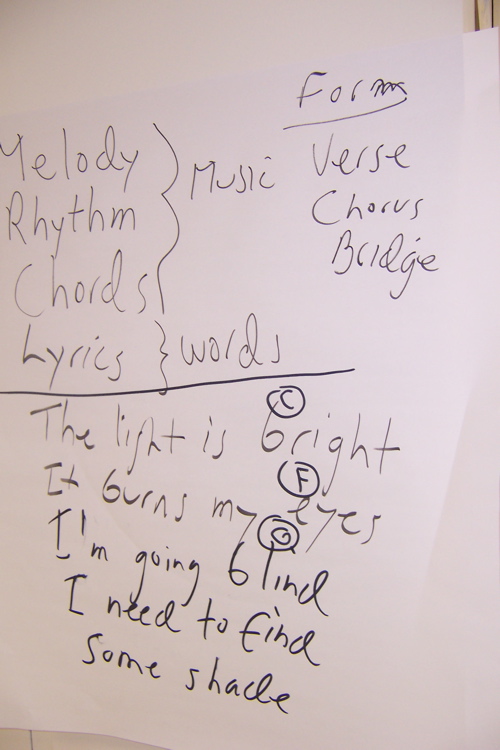 Form
Melody
Rhythm
Chords
Music
Verse
Chorus
Bridge
Lyrics
words
C
The light is bright
F
It burns my eyes
G
I'm going blind
I need to find
some shade